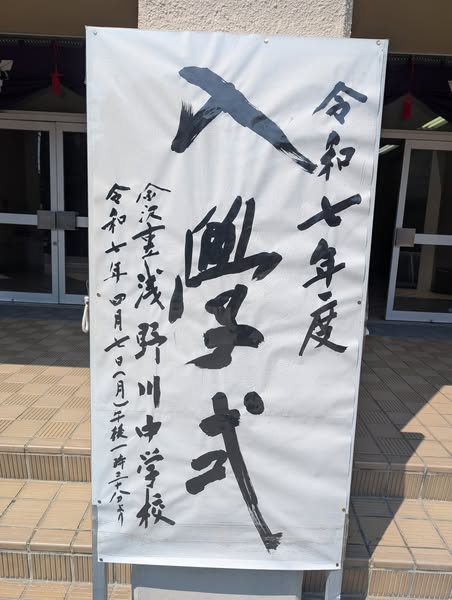 令和七年度
入學式
金沢市立浅野川中学校
令和七年四月七日(月)午後一時三十分より